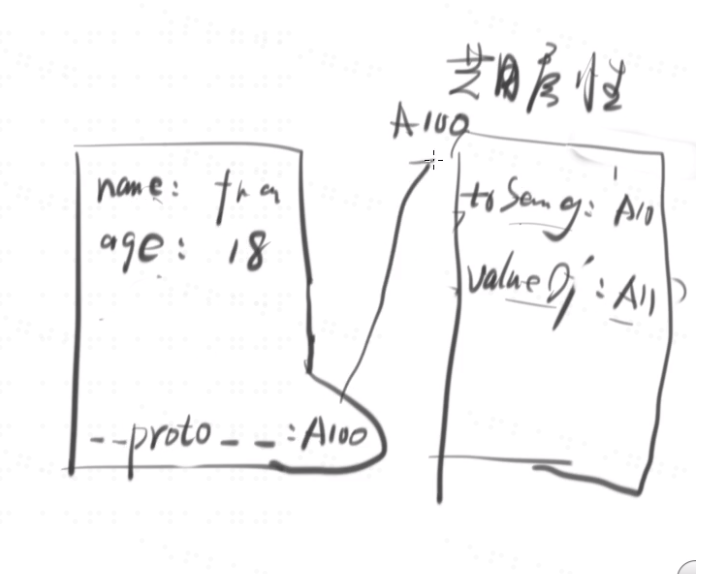 name:
age: 18
__proto__:A100
共用属性
A100
toSemg: A10
valueOf: A11